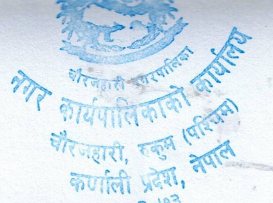 चौरजहारी नगरपालिका
नगर कार्यपालिकाको कार्यालय
चौरजहारी, रुकुम (पश्चिम)
कर्णाली प्रदेश, नेपाल